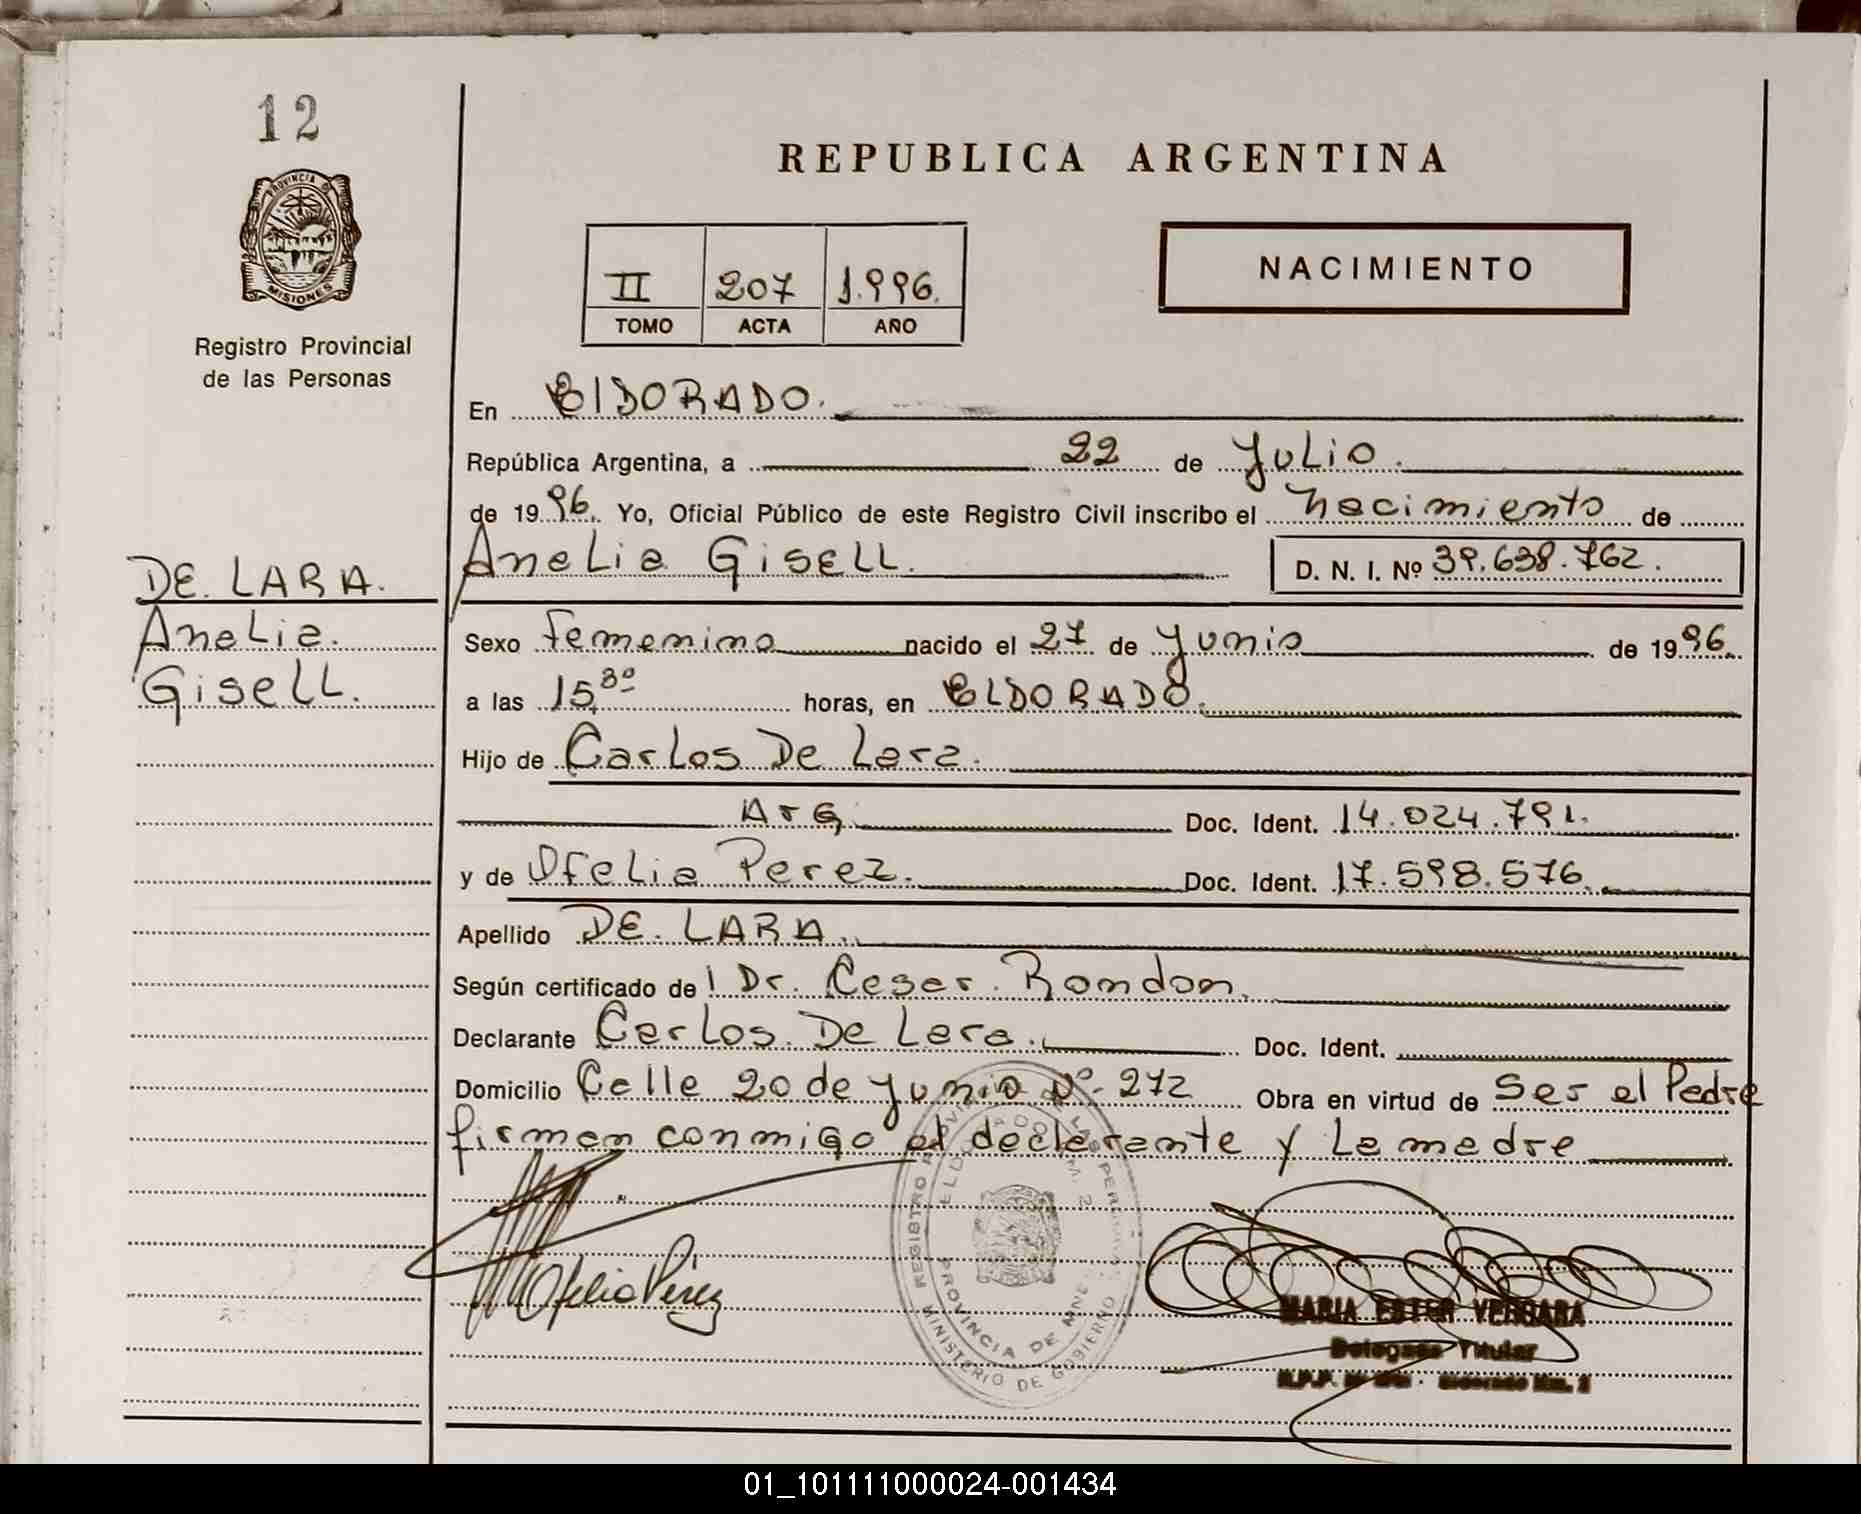 12
PROVINCIA DE
MISIONES
Registro Provincial
de las Personas
REPUBLICA ARGENTINA
II 207 1.996.
TOMO ACTA AÑO
NACIMIENTO
En ElDORADO.
República Argentina, a 22 de Julio.
de 1996. Yo, Oficial Público de este Registro Civil inscribo el nacimiento de
Analia Gisell. D. N. I. Nº 39.638.762.
DE LARA.
Analia.
Gisell.
Sexo femenino nacido el 27 de Junio de 1996.
a las 15,30 horas, en ELDORADO.
Hijo de Carlos De Lara.
Arg. Doc. Ident. 14.024.791.
y de Ofelia Perez. Doc. Ident. 17.598.576.
Apellido DE LARA.
Según certificado de l Dr. Cesar Rondon.
Declarante Carlos De Lara. Doc. Ident.
Domicilio Calle 20 de Junio Nº 272 Obra en virtud de ser el Padre
firman conmigo el declarante y la madre
Ofelia Pérez
REGISTRO PROVINCIAL DE LAS PERSONAS
ELDORADO KM. 2
PROVINCIA DE MNES.
MINISTERIO DE GOBIERNO
MARIA ESTER VERGARA
Delegada Titular
R.P.P. Eldorado Km. 2
01_101111000024-001434